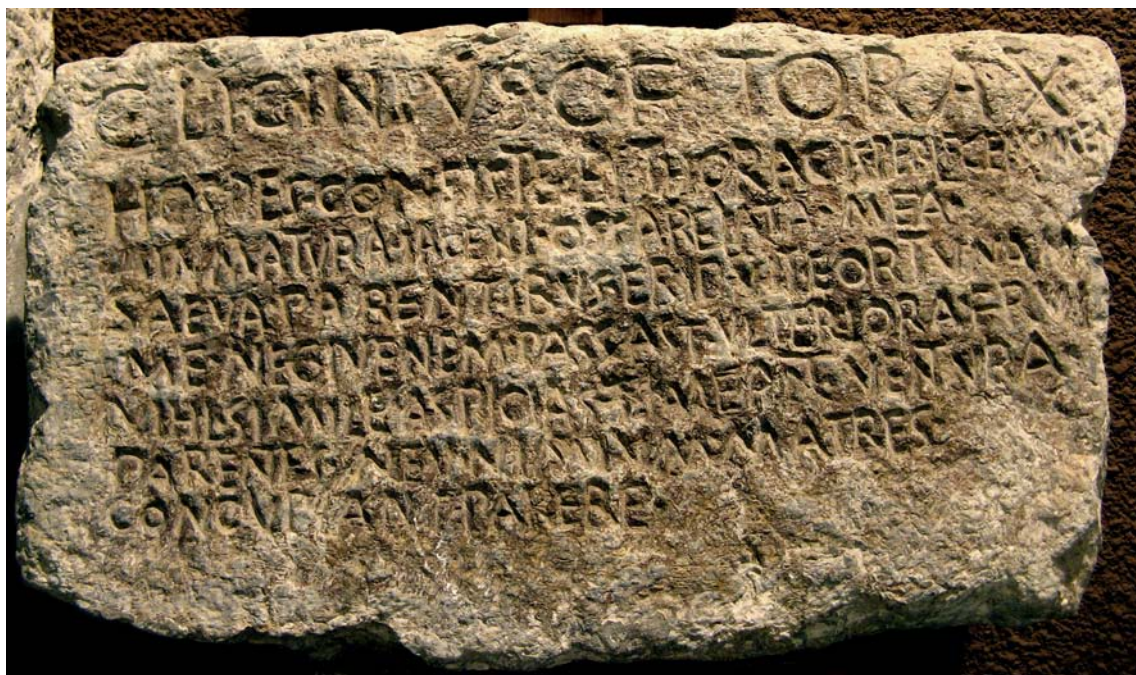 C LICINIVS C F TORAX
HOSPES CONSISTE ET THORACIS PERLEGE NOMEN
INMATVRA IACENT OSSA RELATA MEA
SAEVA PARENTIBVS ERIPVIT FORTVNA M
ME NEC IVENEM PASSAST VLTERIORA FRVI
NIHIL SIMILE ASPICIAS TIMEANT VENTVRA
PARENTES NEV NIMIVM MATRES
CONCVPIANT PARERE